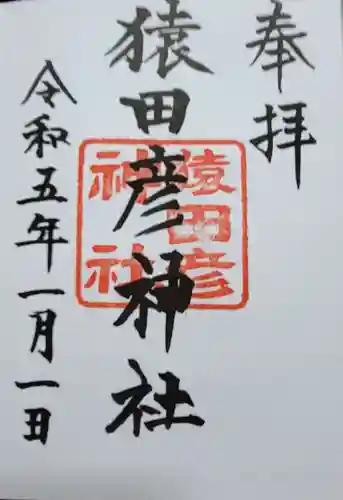 奉拝
猿田彦神社
猿田彦
神社
令和五年一月一日